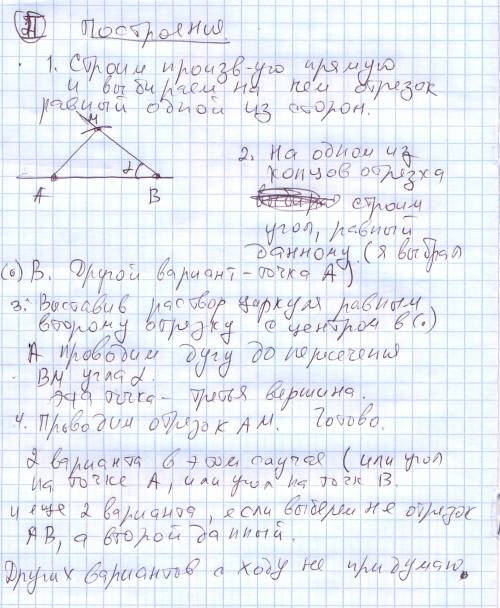 II Построения.
1. Строим произв-ую прямую
и выбираем на ней отрезок
равный одной из сторон.
M
α
A B
2. На одном из
концов отрезка
строим
угол, равный
данному. (я выбрал
(•) B. Другой вариант - точка A)
3. Выставив раствор циркуля равным
второму отрезку с центром в (•)
A проводим дугу до пересечения
BM угла α.
Эта точка - третья вершина.
4. Проводим отрезок AM. Готово.
2 варианта в этом случае (или угол
на точке A, или угол на точк B.
и еще 2 варианта, если выберем не отрезок
AB, а второй данный.
Других вариантов с ходу не придумаю.